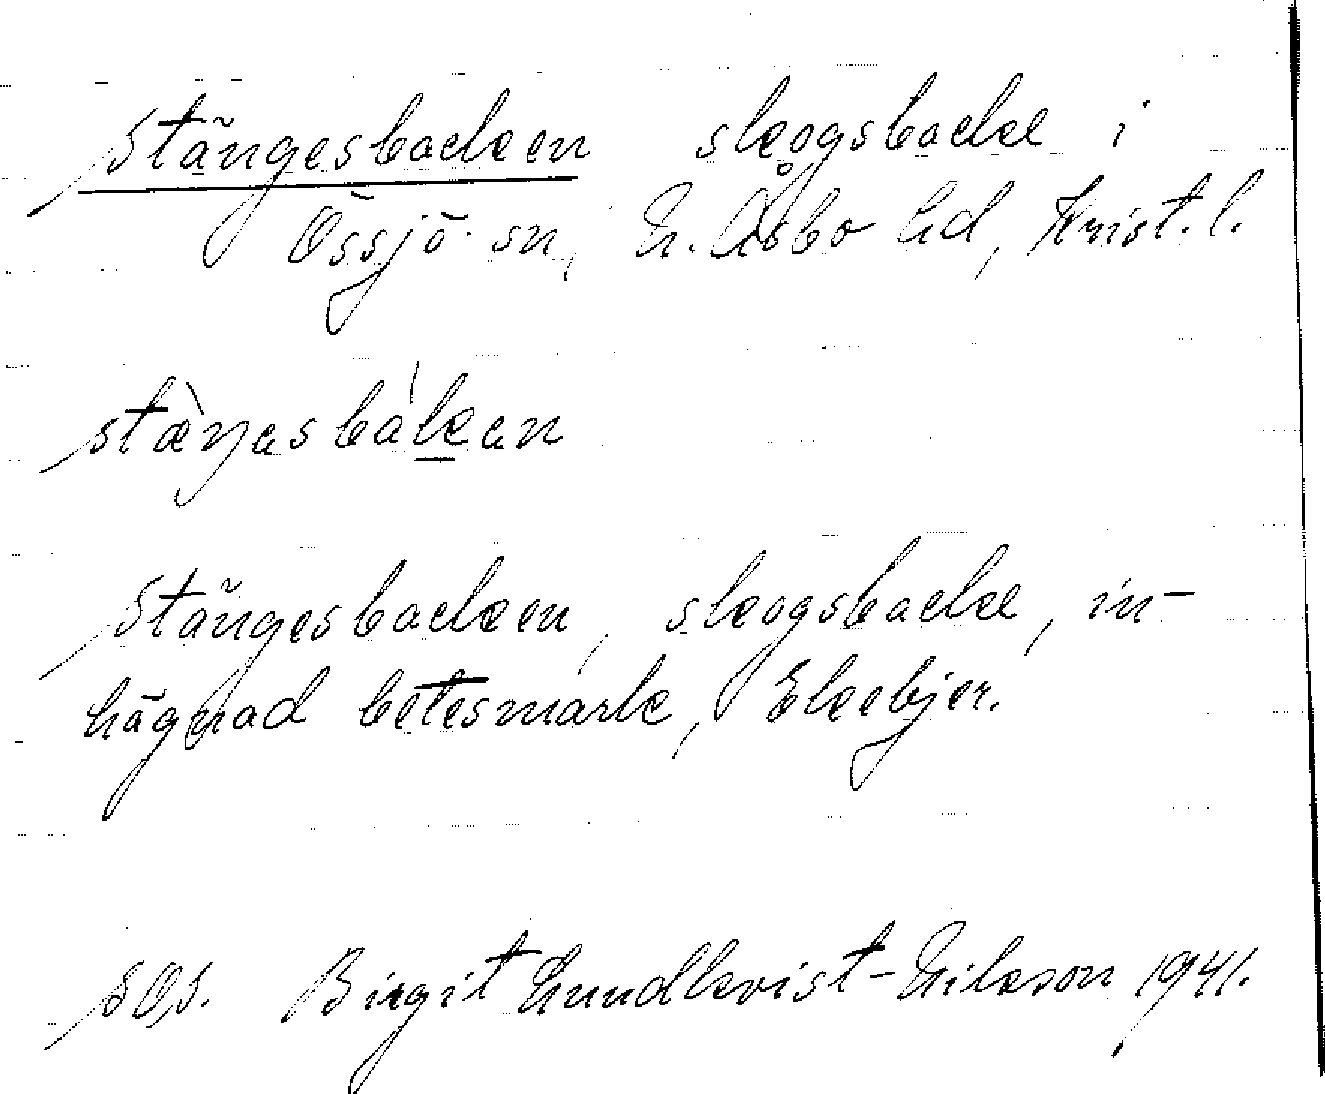 Stängesbacken skogsbacke i
Össjö sn, N. Åsbo hd, Krist. l.
stæ̀ŋasbàkan
Stängesbacken, skogsbacke, in-
hägnad betesmark, Ekebjer.
S.O.S. Birgit Lundkvist-Nilsson 1941.